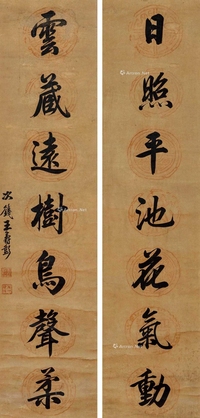 日照平池花氣動
雲藏遠樹鳥聲柔
次鏡王壽彭